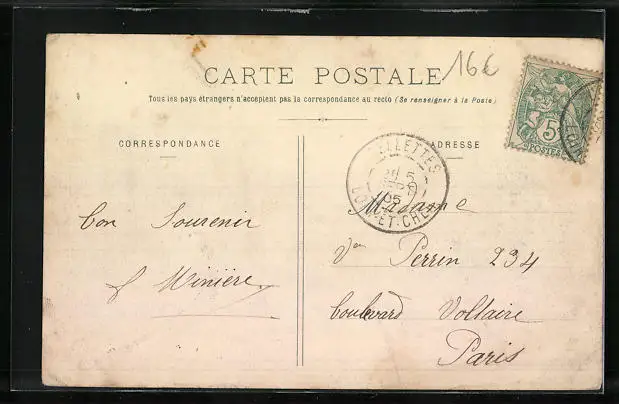 CARTE POSTALE
166
Tous les pays étrangers n'acceptent pas la correspondance au recto (Se renseigner à la Poste)
CORRESPONDANCE
ADRESSE
ELLETTES
5
05
LOIR-ET-CHER
5c
POSTES
Madame
Vve Perrin 234
boulevard Voltaire
Paris
bon Souvenir
Minière